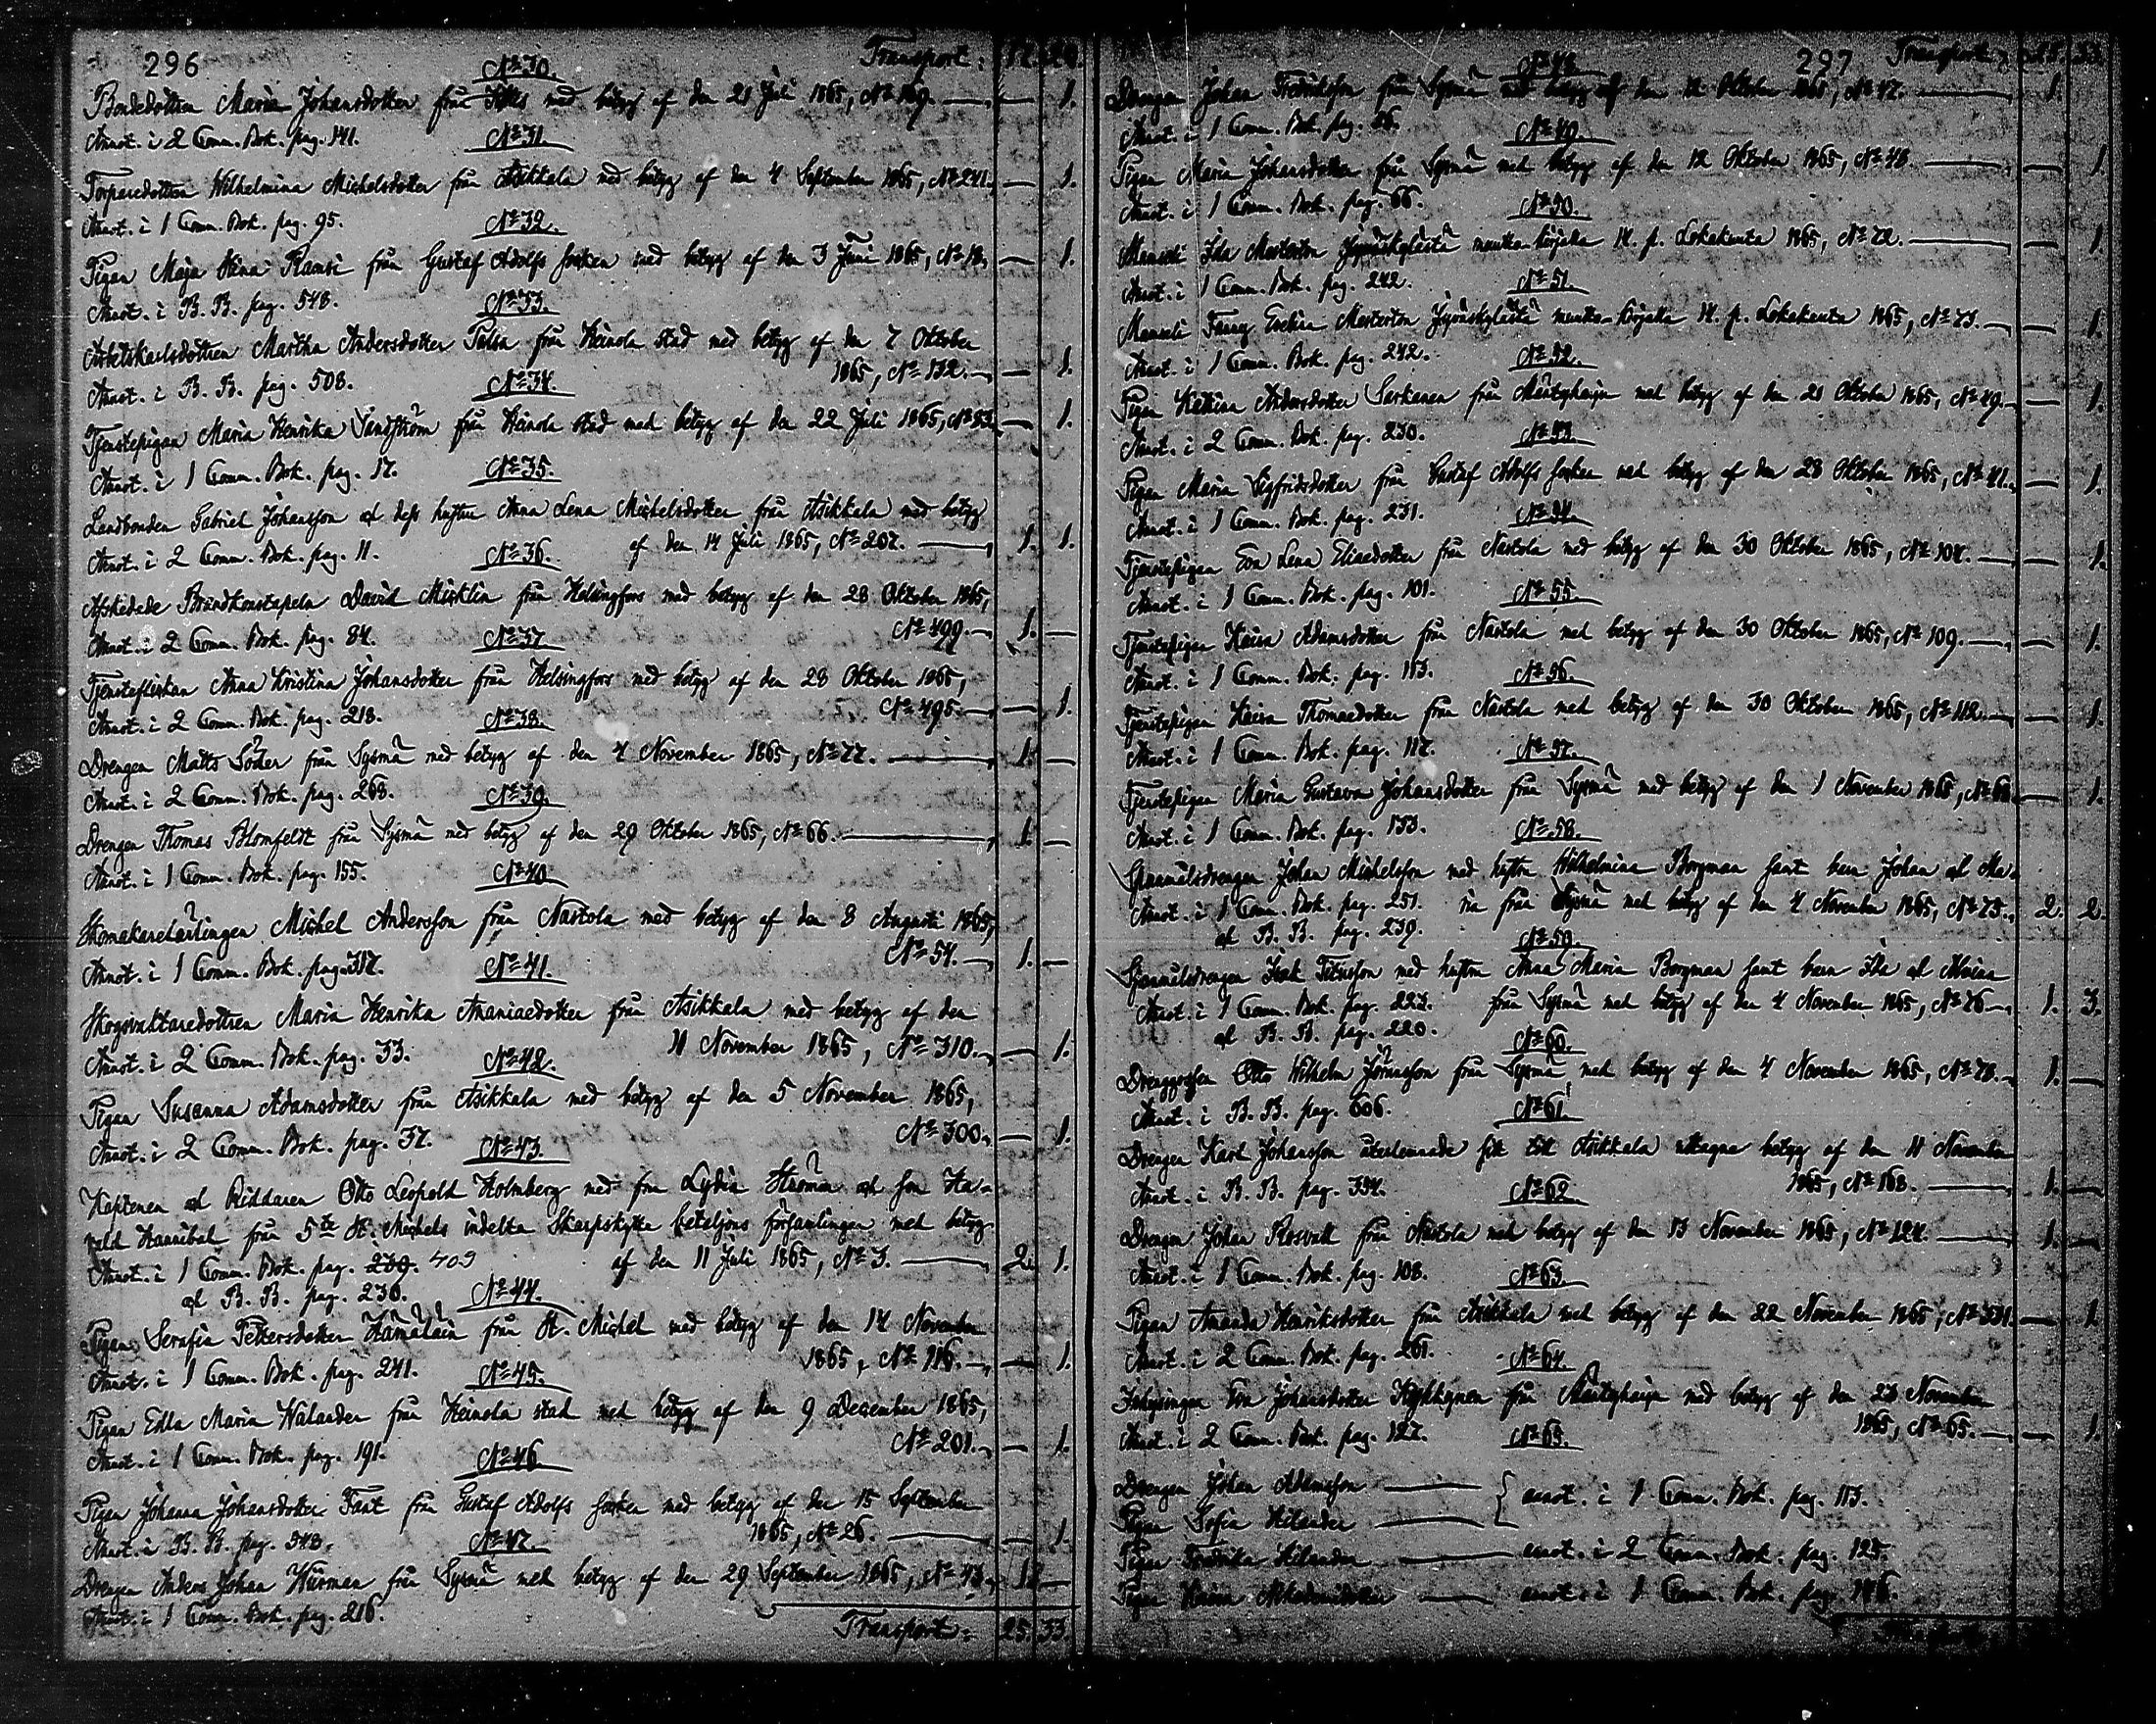 296
Transport:
No 30.
Bondedottren Maria Johansdotter från med betyg af den 21 Juli 1865, No 169. — 1.
Annot. i 2 Comm. Bok. pag. 141.
No 31.
Torparedottren Wilhelmina Michelsdotter från Asikkala med betyg af den 4 September 1865, No 241. — 1.
Annot. i 1 Comm. Bok. pag. 95.
No 32.
Pigan Maja Stina Ramsi från Gustaf Adolfs socken med betyg af den 3 Juni 1865, No 18. — 1.
Annot. i B. B. pag. 548.
No 33.
Arbetskarlsdottren Martha Andersdotter från Heinola stad med betyg af den 7 Oktober
1865, No 132. — 1.
Annot. i B. B. pag. 508.
No 34.
Tjenstepigan Maria Henrika Sandström från Heinola stad med betyg af den 22 Juli 1865, No 83. — 1.
Annot. i 1 Comm. Bok. pag. 17.
No 35.
Landbonden Gabriel Johansson och dess hustru Anna Lena Michelsdotter från Asikkala med betyg
af den 14 Juli 1865, No 207. — 1. 1.
Annot. i 2 Comm. Bok. pag. 11.
No 36.
Afskedade Brandkonstapeln David Micklin från Helsingfors med betyg af den 28 Oktober 1865,
No 499. — 1. —
Annot. i 2 Comm. Bok. pag. 84.
No 37.
Tjensteflickan Anna Kristina Johansdotter från Helsingfors med betyg af den 28 Oktober 1865,
No 495. — 1.
Annot. i 2 Comm. Bok. pag. 218.
No 38.
Drengen Matts Söder från Sysmä med betyg af den 4 November 1865, No 77. — 1. —
Annot. i 2 Comm. Bok. pag. 268.
No 39.
Drengen Thomas Blomfeldt från Sysmä med betyg af den 29 Oktober 1865, No 66. — 1. —
Annot. i 1 Comm. Bok. pag. 155.
No 40.
Skomakarelärlingen Michel Andersson från Nastola med betyg af den 8 Augusti 1865,
No 54. — 1. —
Annot. i 1 Comm. Bok. pag. 317.
No 41.
Skogsvaktaredottren Maria Henrika Ananiaedotter från Asikkala med betyg af den
11 November 1865, No 310. — 1.
Annot. i 2 Comm. Bok. pag. 33.
No 42.
Pigan Susanna Adamsdotter från Asikkala med betyg af den 5 November 1865,
No 300. — 1.
Annot. i 2 Comm. Bok. pag. 37.
No 43.
Kaptenen och Riddaren Otto Leopold Holmberg med fru Lydia och son Ha-
rald Hannibal från 5te St. Michels indelta Skarpskytte bataljons församlingen med betyg
af den 11 Juli 1865, No 3. — 2. 1.
Annot. i 1 Comm. Bok. pag. 239. 409
och B. B. pag. 236.
No 44.
Pigan Serafia Pettersdotter Hämäläin från St. Michel med betyg af den 14 November
1865, No 116. — 1.
Annot. i 1 Comm. Bok. pag. 241.
No 45.
Pigan Edla Maria Walander från Heinola stad med betyg af den 9 December 1865,
No 201. — 1.
Annot. i 1 Comm. Bok. pag. 191.
No 46
Pigan Johanna Johansdotter Fant från Gustaf Adolfs socken med betyg af den 15 September
1865, No 26. — 1.
Annot. i B. B. pag. 548.
No 47.
Drengen Anders Johan Hurman från Sysmä med betyg af den 29 September 1865, No 43. 1. —
Annot. i 1 Comm. Bok. pag. 216.
Transport: 25. 33.
297
Transport: 25. 33.
No 48.
Drengen Johan Fredriksson från Sysmä med betyg af den 12 Oktober 1865, No 47. — 1.
Annot. i 1 Comm. Bok. pag. 26.
No 49.
Pigan Maria Johansdotter från Sysmä med betyg af den 12 Oktober 1865, No 48. — 1.
Annot. i 1 Comm. Bok. pag. 66.
No 50.
Mamseli Ida Masterton Jyväskylästä muutto-kirjalla 14. p. Lokakuuta 1865, No 72. — 1.
Annot. i 1 Comm. Bok. pag. 242.
No 51.
Mamseli Fanny Evelina Masterton Jyväskylästä muutto-kirjalla 14. p. Lokakuuta 1865, No 73. — 1.
Annot. i 1 Comm. Bok. pag. 242.
No 52.
Pigan Katrina Andersdotter Sarkanen från Mäntyharju med betyg af den 21 Oktober 1865, No 49. — 1.
Annot. i 2 Comm. Bok. pag. 230.
No 53.
Pigan Maria Sigfridsdotter från Gustaf Adolfs socken med betyg af den 28 Oktober 1865, No 41. — 1.
Annot. i 1 Comm. Bok. pag. 231.
No 54.
Tjenstepigan Eva Lena Eliaedotter från Nastola med betyg af den 30 Oktober 1865, No 104. — 1.
Annot. i 1 Comm. Bok. pag. 101.
No 55.
Tjenstepigan Kaisa Adamsdotter från Nastola med betyg af den 30 Oktober 1865, No 109. — 1.
Annot. i 1 Comm. Bok. pag. 113.
No 56.
Tjenstepigan Kaisa Thomaedotter från Nastola med betyg af den 30 Oktober 1865, No 112. — 1.
Annot. i 1 Comm. Bok. pag. 117.
No 57.
Tjenstepigan Maria Gustava Johansdotter från Sysmä med betyg af den 1 November 1865, No 68. — 1.
Annot. i 1 Comm. Bok. pag. 153.
No 58.
Johan Michelsson med hustru Wilhelmina Borgman samt barn Johan och Ma-
ria från Sysmä med betyg af den 4 November 1865, No 75. 2. 2.
Annot. i 1 Comm. Bok. pag. 251.
och B. B. pag. 239.
No 59.
Isak Titusson med hustru Anna Maria Borgman samt barn Ida och Alvina
från Sysmä med betyg af den 4 November 1865, No 76. 1. 3.
Annot. i 1 Comm. Bok. pag. 223.
och B. B. pag. 220.
No 60.
Drenggossen Otto Wilhelm från Sysmä med betyg af den 4 November 1865, No 78. 1. —
Annot. i B. B. pag. 606.
No 61.
Drengen Karl Johansson återlemnade sitt till Asikkala uttagna betyg af den 11 November
1865, No 168. — 1. —
Annot. i B. B. pag. 394.
No 62.
Drengen Johan Rosvall från Nastola med betyg af den 13 November 1865, No 124. — 1. —
Annot. i 1 Comm. Bok. pag. 108.
No 63.
Pigan Amanda Henriksdotter från Asikkala med betyg af den 22 November 1865, No 331. — 1.
Annot. i 2 Comm. Bok. pag. 261.
No 64.
Inhysingen Eva Johansdotter från Mäntyharju med betyg af den 23 November
1865, No 65. — 1.
Annot. i 2 Comm. Bok. pag. 127.
No 65.
Drengen Johan Adamsson —
Pigan Sofia Hilander — annot. i 1 Comm. Bok. pag. 113.
Pigan Fredrika Hilander — annot. i 2 Comm. Bok. pag. 125.
Pigan Kaisa — annot. i 1 Comm. Bok. pag. 146.